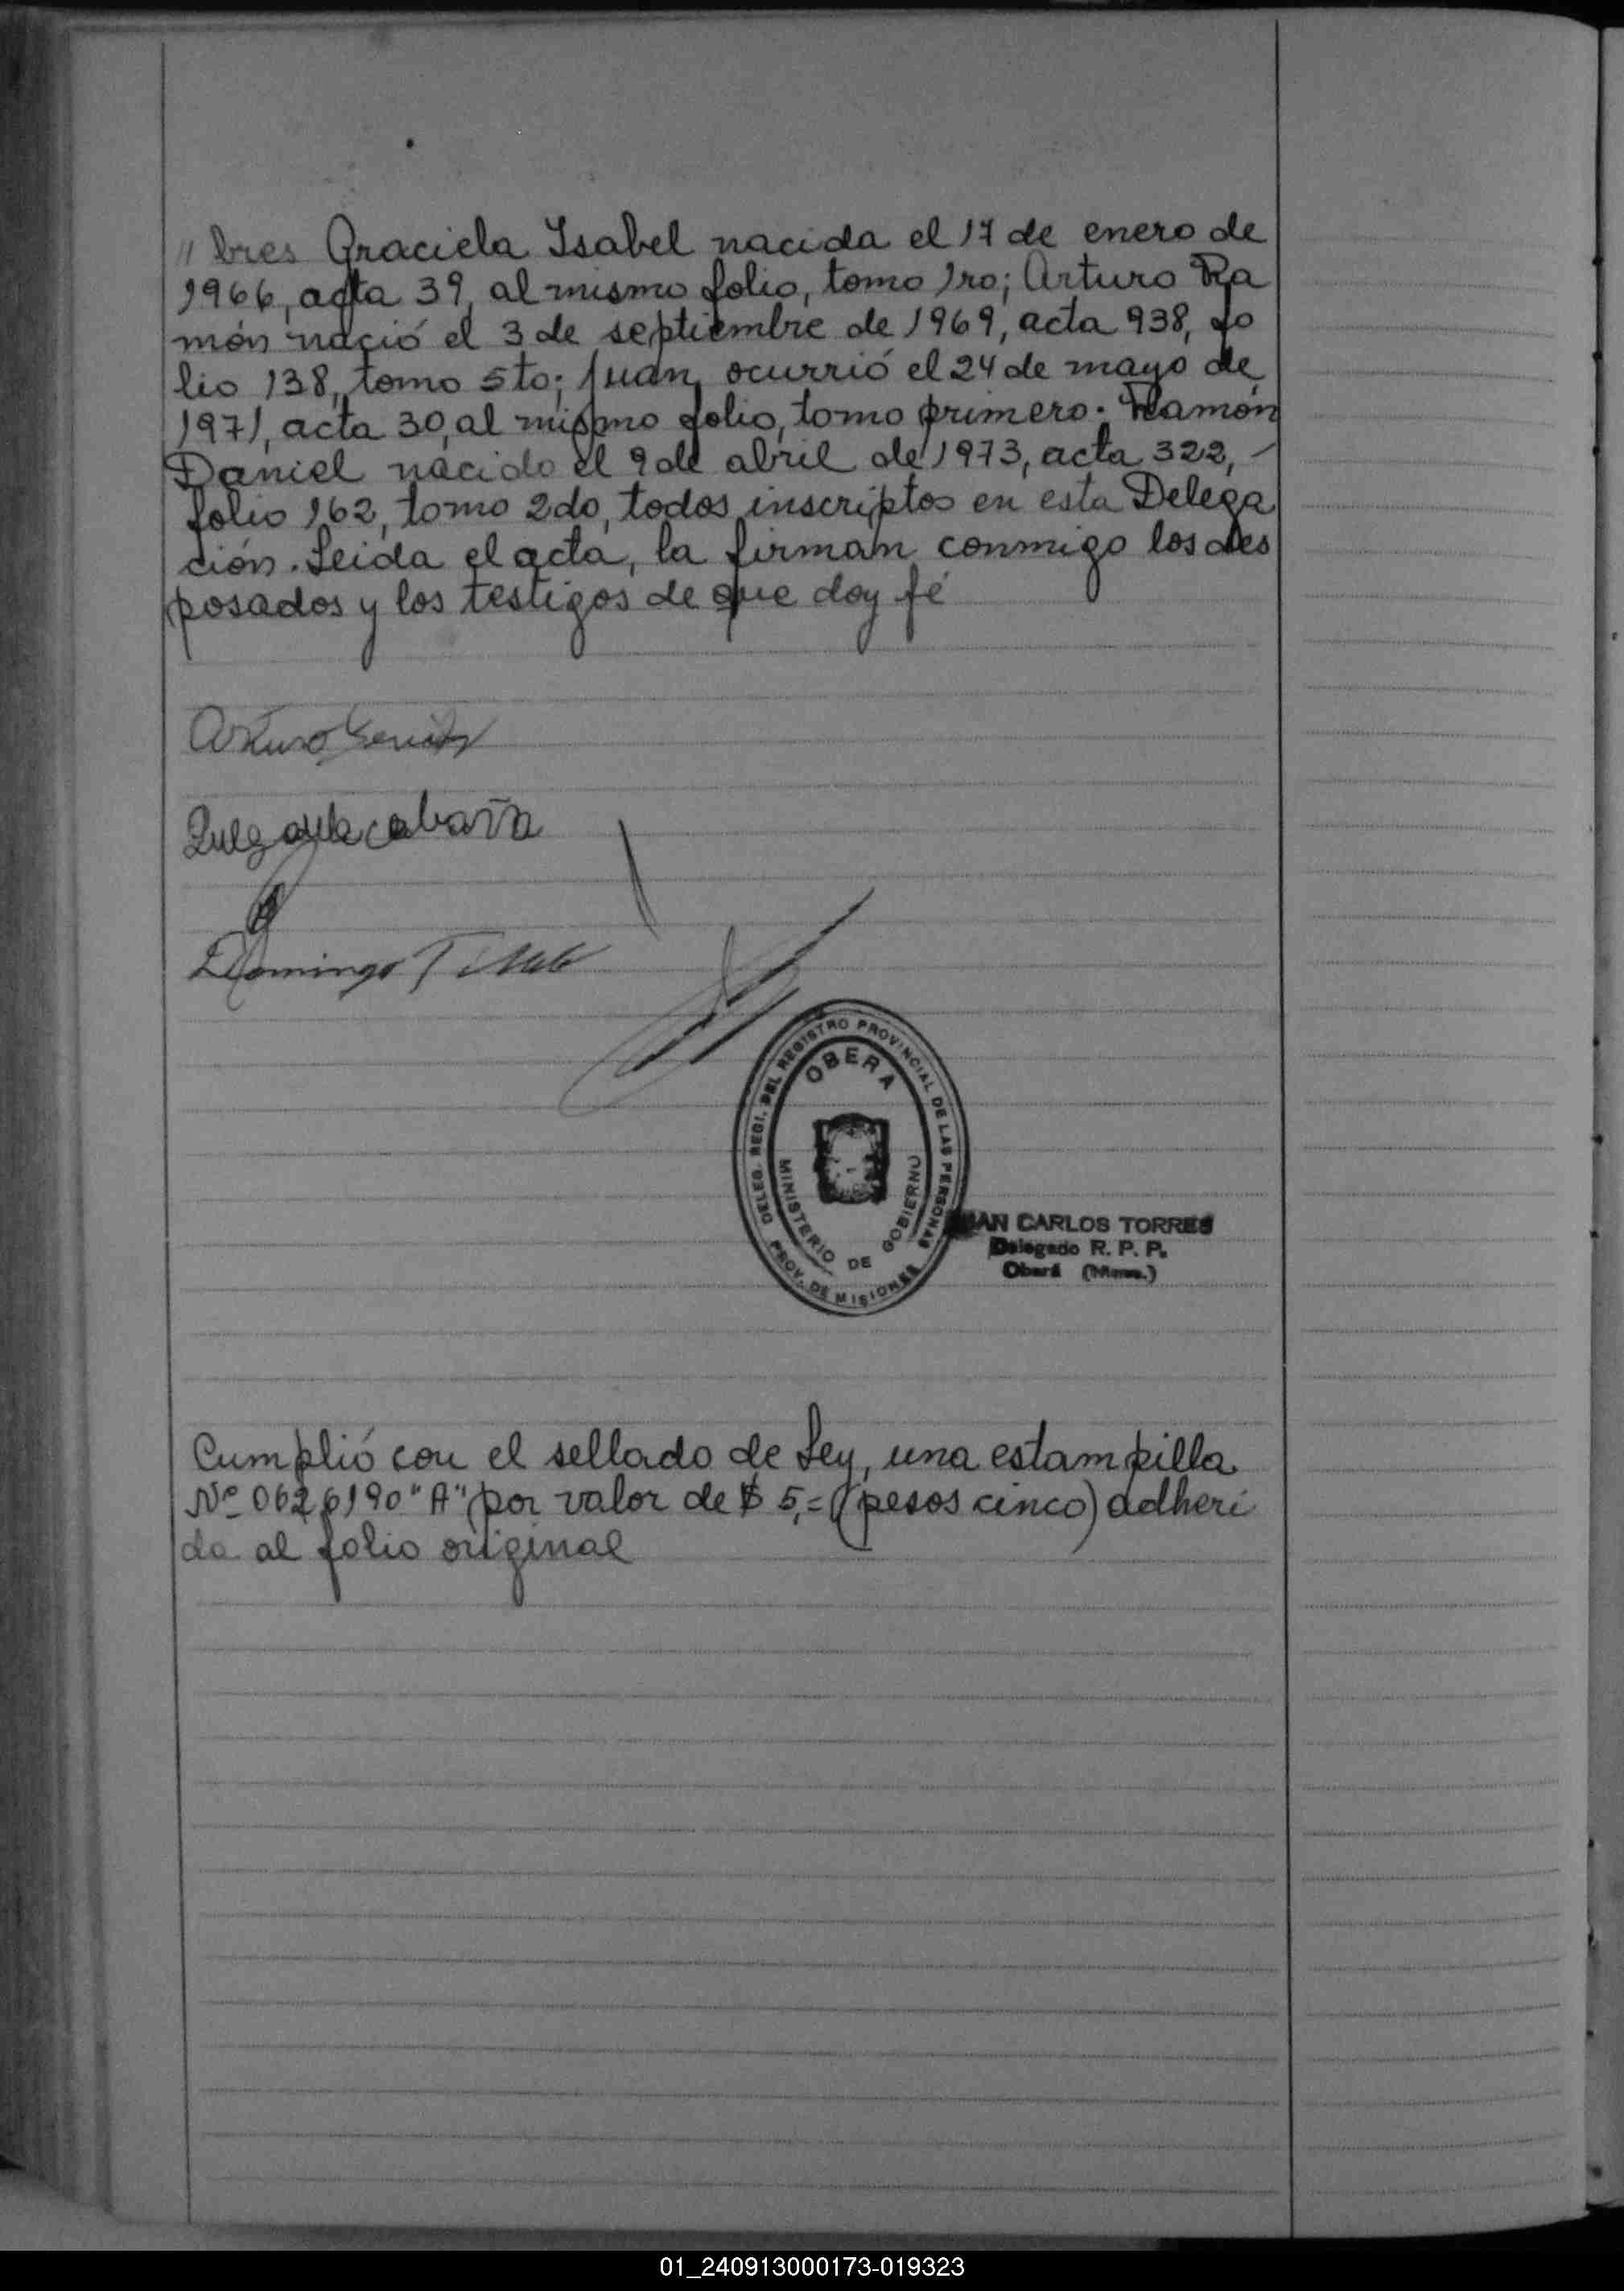 " bres Graciela Isabel nacida el 17 de enero de
1966, acta 39, al mismo folio, tomo 1ro; Arturo Ra
món nació el 3 de septiembre de 1969, acta 938, fo
lio 138, tomo 5to; Juan, ocurrió el 24 de mayo de
1971, acta 30, al mismo folio, tomo primero. Ramón
Daniel nacido el 9 de abril de 1973, acta 322, -
folio 162, tomo 2do, todos inscriptos en esta Delega
ción. Leida el acta, la firman conmigo los des
posados y los testigos de que doy fé
Arturo
Domingo
DELEG. REGI. DEL REGISTRO PROVINCIAL DE LAS PERSONAS
OBERA
MINISTERIO DE GOBIERNO
PROV. DE MISIONES
JUAN CARLOS TORRES
Delegado R. P. P.
Oberá (Mnes.)
Cumplió con el sellado de Ley, una estampilla
Nº 0626190 "A" por valor de $ 5,= (pesos cinco) adheri
da al folio original
01_240913000173-019323